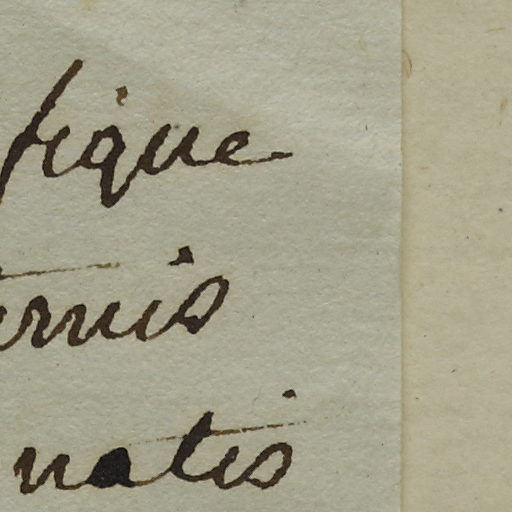 sique
ernis
natis